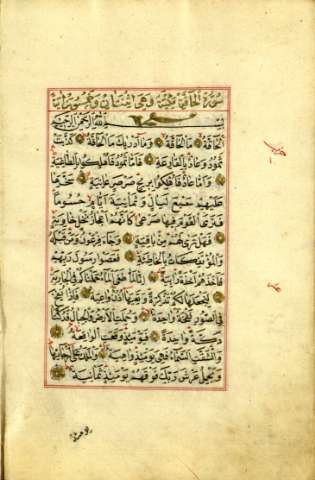 سورة الحاقة مكية وهي اثنتان وخمسون اية
بِسْمِ اللّٰهِ الرَّحْمٰنِ الرَّحِيمِ
اَلْحَاقَّةُ مَا الْحَاقَّةُ وَمَا اَدْرٰيكَ مَا الْحَاقَّةُ كَذَّبَتْ
ثَمُودُ وَعَادٌ بِالْقَارِعَةِ فَاَمَّا ثَمُودُ فَاُهْلِكُوا بِالطَّاغِيَةِ
وَاَمَّا عَادٌ فَاُهْلِكُوا بِرِيحٍ صَرْصَرٍ عَاتِيَةٍ سَخَّرَهَا
عَلَيْهِمْ سَبْعَ لَيَالٍ وَثَمَانِيَةَ اَيَّامٍ حُسُومًا
فَتَرَى الْقَوْمَ فِيهَا صَرْعٰى كَاَنَّهُمْ اَعْجَازُ نَخْلٍ خَاوِيَةٍ
فَهَلْ تَرٰى لَهُمْ مِنْ بَاقِيَةٍ وَجَاءَ فِرْعَوْنُ وَمَنْ قَبْلَهُ
وَالْمُؤْتَفِكَاتُ بِالْخَاطِئَةِ فَعَصَوْا رَسُولَ رَبِّهِمْ
فَاَخَذَهُمْ اَخْذَةً رَابِيَةً اِنَّا لَمَّا طَغَا الْمَاءُ حَمَلْنَاكُمْ فِي الْجَارِيَةِ
لِنَجْعَلَهَا لَكُمْ تَذْكِرَةً وَتَعِيَهَا اُذُنٌ وَاعِيَةٌ فَاِذَا نُفِخَ
فِي الصُّورِ نَفْخَةٌ وَاحِدَةٌ وَحُمِلَتِ الْاَرْضُ وَالْجِبَالُ فَدُكَّتَا
دَكَّةً وَاحِدَةً فَيَوْمَئِذٍ وَقَعَتِ الْوَاقِعَةُ
وَانْشَقَّتِ السَّمَاءُ فَهِيَ يَوْمَئِذٍ وَاهِيَةٌ وَالْمَلَكُ عَلٰى اَرْجَائِهَا
وَيَحْمِلُ عَرْشَ رَبِّكَ فَوْقَهُمْ يَوْمَئِذٍ ثَمَانِيَةٌ
يومئذ